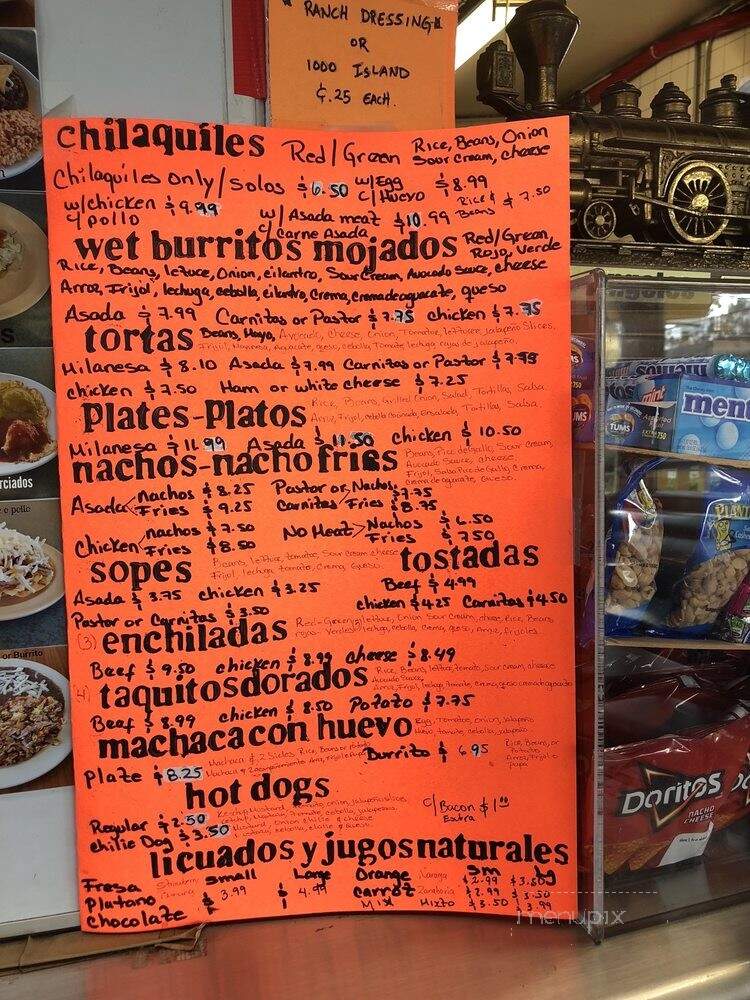 RANCH DRESSING
OR
1000 ISLAND
¢.25 EACH.
chilaquiles Red/Green Rice, Beans, Onion
Sour cream, cheese
Chilaquiles only/solos $6.50 w/Egg $8.99
c/Huevo
w/chicken $9.99 Rice & $7.50
c/pollo Beans
w/Asada meat $10.99
c/Carne Asada
wet burritos mojados Red/Green
Rojo, Verde
Rice, Beans, letuce, Onion, cilantro, Sour Cream, Avocado Sauce, cheese
Arroz, Frijol, lechuga, cebolla, cilantro, Crema, Crema de aguacate, queso
Asada $7.99 Carnitas or Pastor $7.75 chicken $7.75
tortas Beans, Mayo, Avocado, Cheese, Onion, Tomatoe, lettuce, jalapeño Slices.
Milanesa $8.10 Asada $7.99 Carnitas or Pastor $7.75
chicken $7.50 Ham or white cheese $7.25
Plates-Platos Rice, Beans, Grilled Onion, Salad, Tortillas, Salsa
Milanesa $11.99 Asada $11.50 chicken $10.50
nachos-nacho fries Beans, Pico de gallo, Sour Cream,
Avocado Sauce, cheese
Asada nachos $8.25 Pastor or Nachos $7.75
Fries $9.25 Carnitas Fries $8.75
Chicken nachos $7.50 No Meat Nachos $6.50
Fries $8.50 Fries $7.50
sopes Beans, lettuce, tomatoe, Sour cream, cheese
Frijol, lechuga, tomate, Crema, queso
Asada $3.75 chicken $3.25
Pastor or Carnitas $3.50
tostadas
Beef $4.99
chicken $4.25 Carnitas $4.50
(3) enchiladas Red-Green, lettuce, Onion, Sour cream, chese, Rice, Beans,
rojas-Verdes, lechuga, cebolla, crema, queso, Arroz, Frijoles
Beef $9.50 chicken $8.99 cheese $8.49
(4) taquitos dorados Rice, Beans, lettuce, tomato, Sour cream, cheese
Avocado Sauce
Beef $8.99 chicken $8.50 Potato $7.75
machaca con huevo Egg, Tomatoe, onion, jalapeño
Huevo, tomate, cebolla, jalapeño
plate $8.25 Machaca & 2 Sides Rice, Beans or potato
Burrito $6.95 Rice, Beans, or
Potatoe
Arroz, Frijol o
papa
hot dogs
Regular $2.50
chilie Dog $3.50
c/Bacon $1.00
Extra
licuados y jugos naturales
small Large sm lg
Fresa Orange Naranja $2.99 $3.50
Platano $3.99 $4.99 carrot Zanahoria $2.99 $3.50
chocolate Mix Mixto $3.50 $3.99
Doritos
NACHO
CHEESE
ment
TUMS
menupix